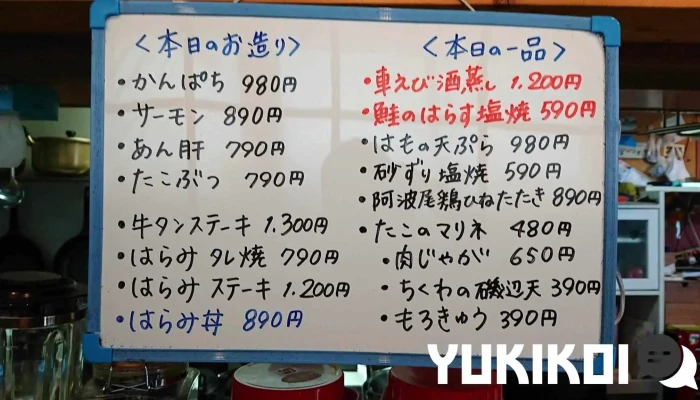 ＜本日のお造り＞
・かんぱち 980円
・サーモン 890円
・あん肝 790円
・たこぶつ 790円
・牛タンステーキ 1.300円
・はらみ タレ焼 790円
・はらみ ステーキ 1.200円
・はらみ丼 890円
＜本日の一品＞
・車えび酒蒸し 1.200円
・鮭のはらす塩焼 590円
・はもの天ぷら 980円
・砂ずり塩焼 590円
・阿波尾鶏ひねたたき 890円
・たこのマリネ 480円
・肉じゃが 650円
・ちくわの磯辺天 390円
・もろきゅう 390円
YUKIKOI